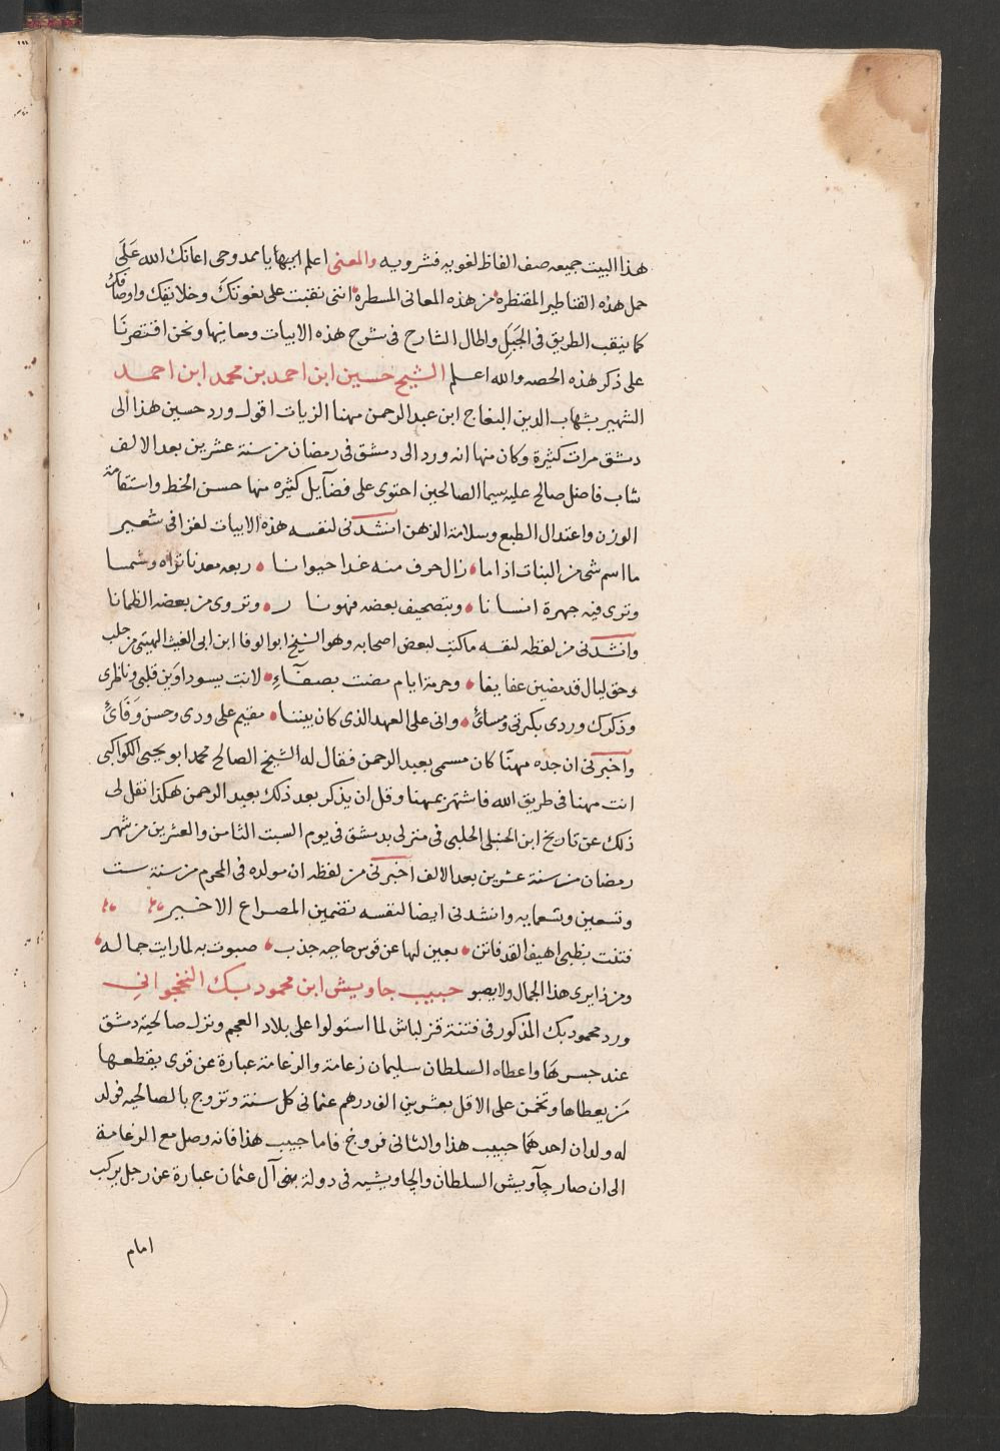 هذا البيت جميعه صف الفاظ لغويه فشرويه والمعنى اعلم ايها يا ممدوحى اعانك الله على
حمل هذه القناطير المقنطره من هذه المعانى المسطره اننى نقبت على نعوتك وخلائقك واوصافك
كما ينقب الطريق فى الجبل واطال الشارح فى شرح هذه الابيات ومعانيها ونحن اقتصرنا
على ذكر هذه الحصه والله اعلم الشيخ حسين ابن احمد بن محمد ابن احمد
الشهير بشهاب الدين ابن عبد الرحمن مهنا الزيات اقول ورد حسين هذا الى
دمشق مرات كثيرة وكان منها انه ورد الى دمشق فى رمضان من سنة عشرين بعد الالف
شاب فاضل صالح عليه سيما الصالحين احتوى على فضآيل كثيره منها حسن الخط واستقامة
الوزن واعتدال الطبع وسلامة الذهن انشدنى لنفسه هذه الابيات لغزا فى شعير
ما اسم شى من النبات اذا ما زال حرف منه غدا حيوانا ربعه معدنا تراه وشمسا
وترى فيه جهرة انسانا وبتصحيف بعضه فهو نار وتروى من بعضه الظمانا
وانشدنى من لفظه لنفسه ما كتب لبعض اصحابه وهو الشيخ ابو الوفا ابن ابى الغيث من حلب
وحق ليال قد مضين وحرمة ايام مضت بصفآء لانت بسوداوين قلبى وناظرى
وذكرك وردى بكرتى ومسائى وانى على العهد الذى كان بيننا مقيم على ودى وحسن وفائى
واخبرنى ان جده مهنا كان مسمى بعبد الرحمن فقال له الشيخ الصالح محمد ابو يحيى الكواكبى
انت مهنا فى طريق الله فاشتهر بمهنا وقل ان يذكر بعد ذلك بعبد الرحمن هكذا نقل لى
ذلك عن تاريخ ابن الحنبلى الحلبى فى منزلى بدمشق فى يوم السبت الثامن والعشرين من شهر
رمضان من سنة عشرين بعد الالف اخبرنى من لفظه ان مولده فى المحرم من سنة ست
وتسعين وتسعمايه وانشدنى ايضا لنفسه تضمين المصراع الاخير
فتنت بظبى اهيف القد فاتن بعين لها عن قوس حاجبه جذب صبوت به لما رايت جماله
ومن ذا يرى هذا الجمال ولا يصبو حبيب جاويش ابن محمود بك النخجوانى
ورد محمود بك المذكور فى فتنة قزلباش لما استولوا على بلاد العجم ونزل صالحية دمشق
عند جسرها واعطاه السلطان سليمان زعامة والزعامة عبارة عن قرى يقطعها
من يعطاها وتخمن على الاقل بعشرين الف درهم عثمانى كل سنة وتزوج بالصالحيه فولد
له ولدان احدهما حبيب هذا والثانى فروخ فاما حبيب هذا فانه وصل مع الزعامة
الى ان صار جآويش السلطان والجاويشيه فى دولة بنى آل عثمان عبارة عن رجل يركب
امام